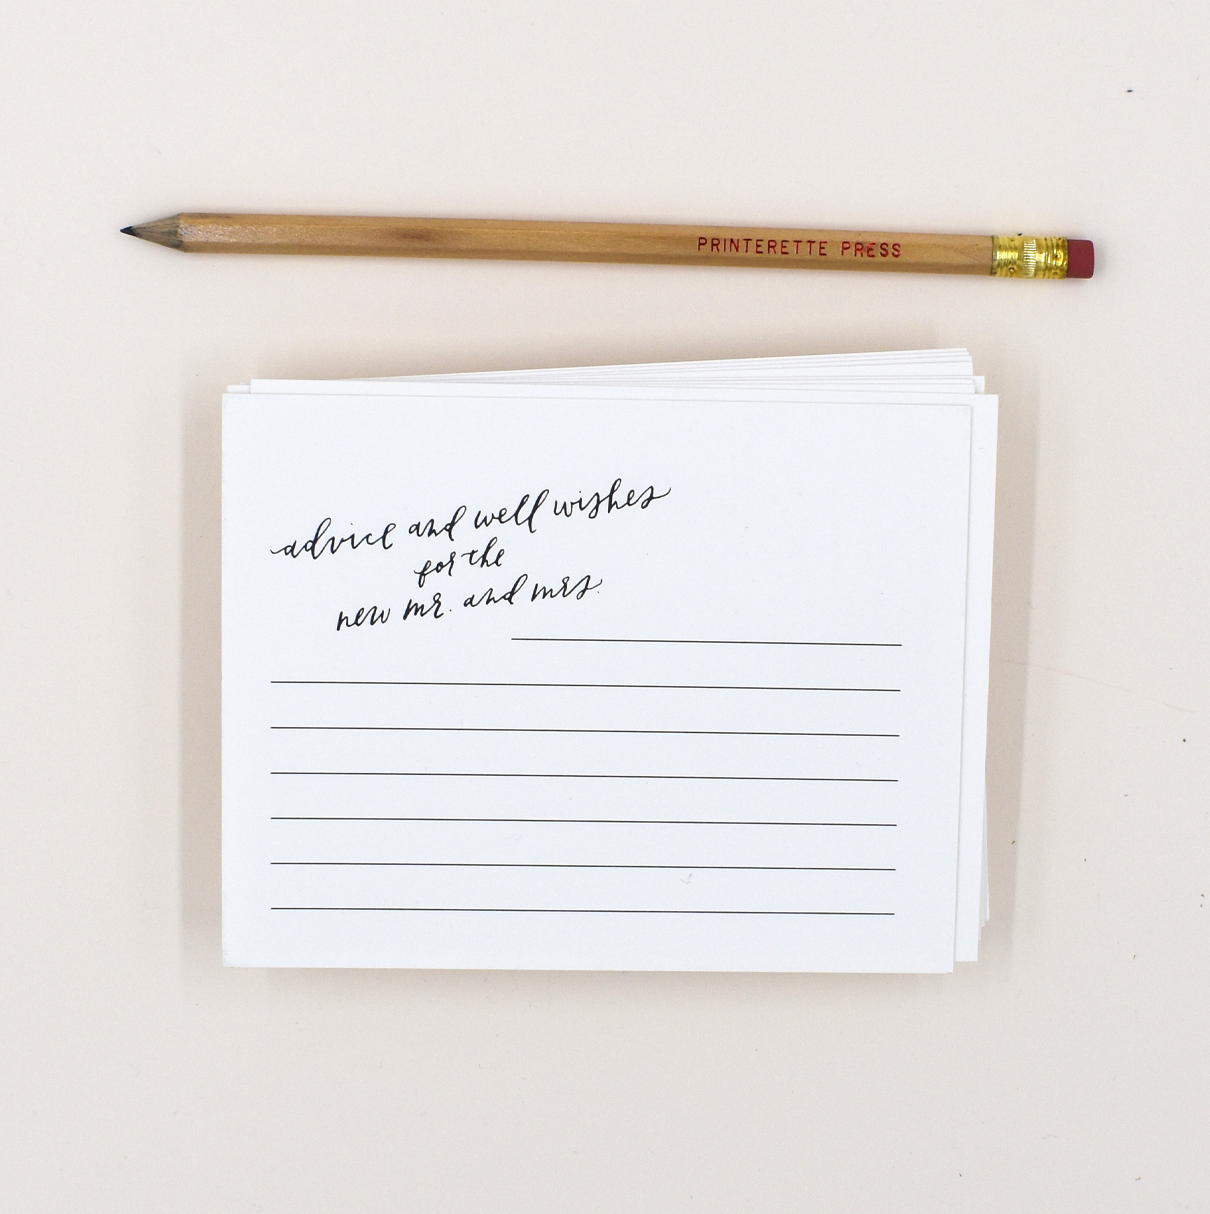 PRINTERETTE PRESS
advice and well wishes
for the
new mr. and mrs.